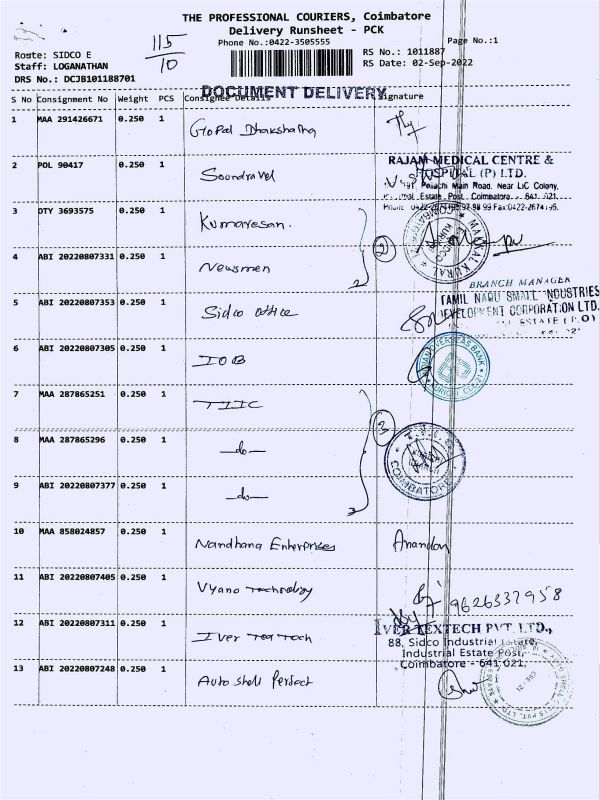 THE PROFESSIONAL COURIERS, Coimbatore
Delivery Runsheet - PCK
115
10
Phone No.:0422-3505555
Page No.:1
Route: SIDCO E
RS No.: 1011887
Staff: LOGANATHAN
RS Date: 02-Sep-2022
DRS No.: DCJB101188701
DOCUMENT DELIVERY
S No Consignment No Weight PCS Consignee Details Signature
1 MAA 291426671 0.250 1
2 POL 90417 0.250 1 Soundravel
RAJAM MEDICAL CENTRE &
HOSPITAL (P) LTD.
Main Road. Near LIC Colony,
Estate Post, Coimbatore - 641 021.
3 DTY 3693575 0.250 1 Kumaresan.
MAKKAL KURAL
4 ABI 20220807331 0.250 1 Newsmen
2
BRANCH MANAGER
5 ABI 20220807353 0.250 1 Sidco office
TAMIL NADU SMALL INDUSTRIES
DEVELOPMENT CORPORATION LTD.
ESTATE (P.O)
6 ABI 20220807305 0.250 1 IOB
INDIAN OVERSEAS BANK
7 MAA 287865251 0.250 1 TIIC
3
8 MAA 287865296 0.250 1 -do-
COIMBATORE
9 ABI 20220807377 0.250 1 -do-
10 MAA 858024857 0.250 1 Nandhana Enterprises
11 ABI 20220807405 0.250 1 Vyano technology
9626337958
12 ABI 20220807311 0.250 1 Iver Tea Tech
IVER TEXTECH PVT. LTD.,
88, Sidco Industrial Estate,
Industrial Estate Post,
Coimbatore - 641 021.
13 ABI 20220807248 0.250 1 Auto shell Perfect